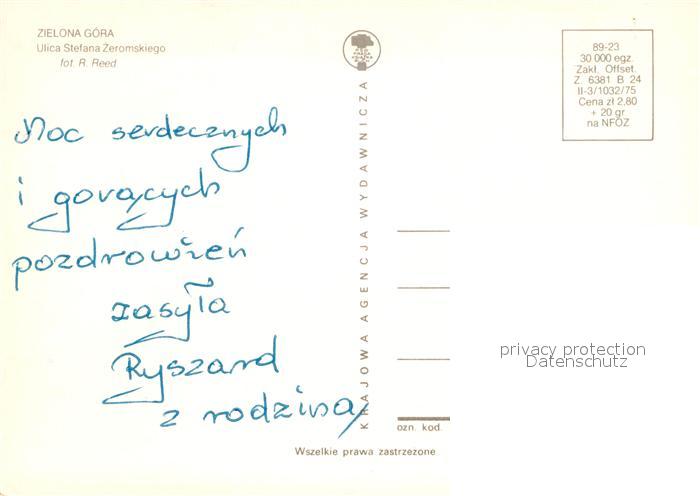 ZIELONA GÓRA
Ulica Stefana Żeromskiego
fot. R. Reed
Moc serdecznych
i gorących
pozdrowień
zasyła
Ryszard
z rodziną
KRAJOWA AGENCJA WYDAWNICZA
89-23
30 000 egz.
Zakł. Offset.
Z. 6381 B 24
II-3/1032/75
Cena zł 2,80
+ 20 gr
na NFOZ
privacy protection
Datenschutz
ozn. kod.
Wszelkie prawa zastrzeżone